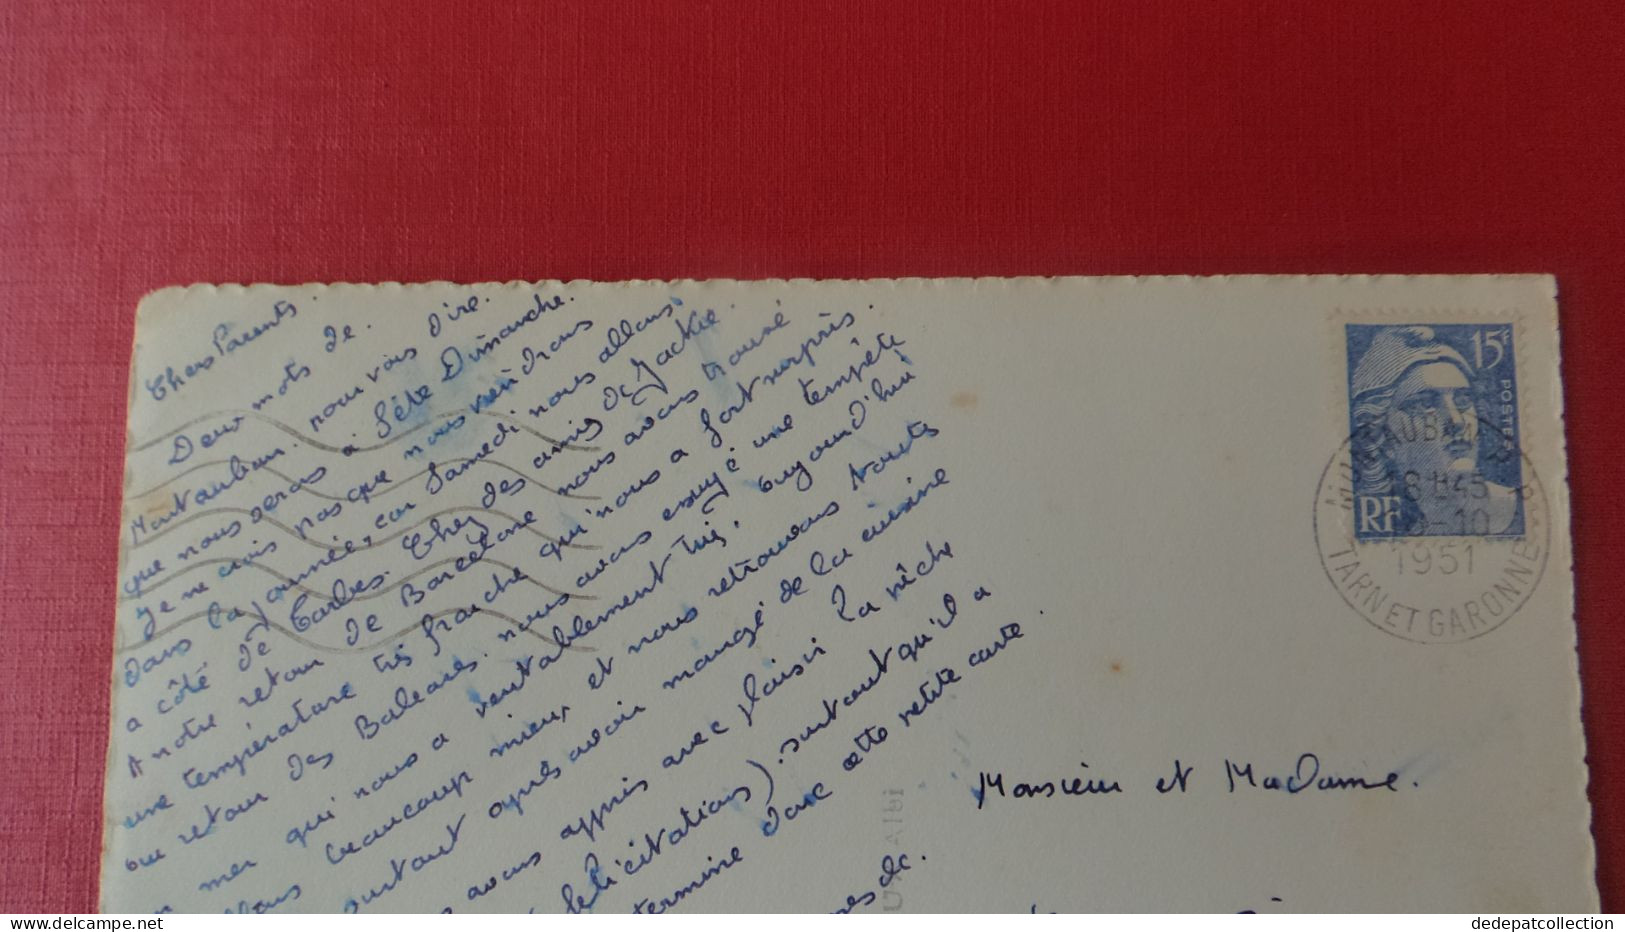 Chers Parents.
Deux mots de
Montauban. pour vous dire.
que nous serons à Sète Dimanche.
Je ne crois pas que nous viendrons
dans la journée, car Samedi nous allons
a côté de Tarbes. Chez des amis de Jackie.
A notre retour de Barcelone nous avons trouvé
une température très fraîche qu'nous a fort surpris.
au retour des Baleares. nous avons essuyé une tempête
en mer qui nous a véritablement tué. aujourd'hui
allons beaucoup mieux et nous retrouvons
surtout après avoir mangé de la cuisine
avons appris avec plaisir la
félicitations). surtout qu'il a
termine donc cette petite carte.
de.
Monsieur et Madame.
15F
POSTES
RF
MONTAUBAN
18H45
-10
1951
TARN ET GARONNE
dedepatcollection